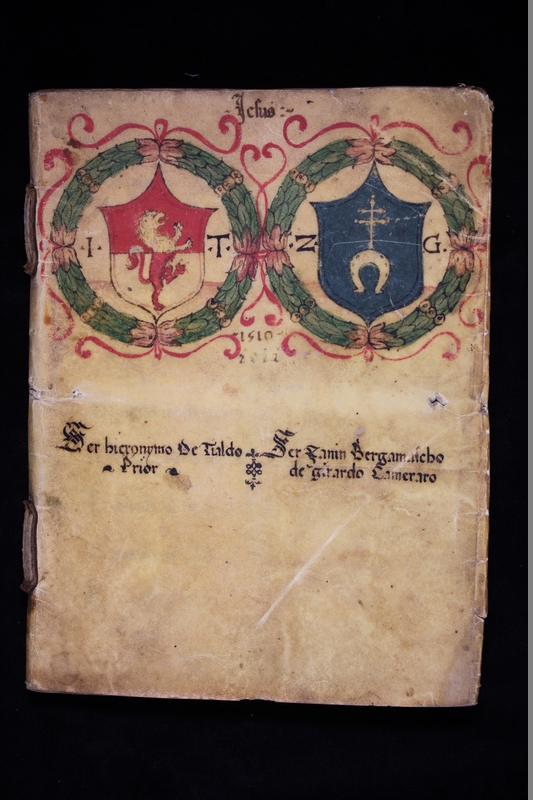 Jesus
·I· ·T· ·Z· G·
1510
Ser hieronymo De Tialdo
Prior
Ser Zanin Bergamascho
de girardo Cameraro